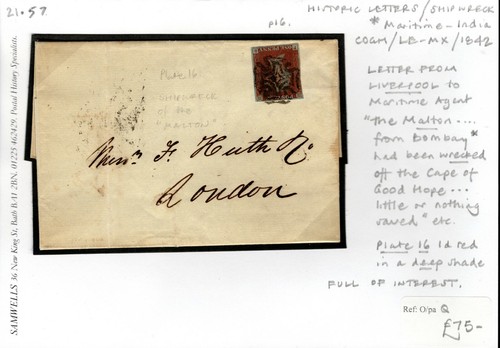 21.57
HISTORIC LETTERS/SHIPWRECK
p16.
* Maritime - India
COGH/LB-MX/1842
LETTER FROM
LIVERPOOL to
Maritime Agent
"The Malton....
from Bombay*
had been wrecked
off the Cape of
Good Hope...
little or nothing
saved" etc.
Plate 16 1d red
in a deep shade
FULL OF INTEREST.
Plate 16
SHIPWRECK
of the
"MALTON"
Messrs F. Huth &Co
London
SAMWELLS 36 New King St, Bath BA1 2BN. 01225 462429. Postal History Specialists.
Ref: O/pa Q
£75-